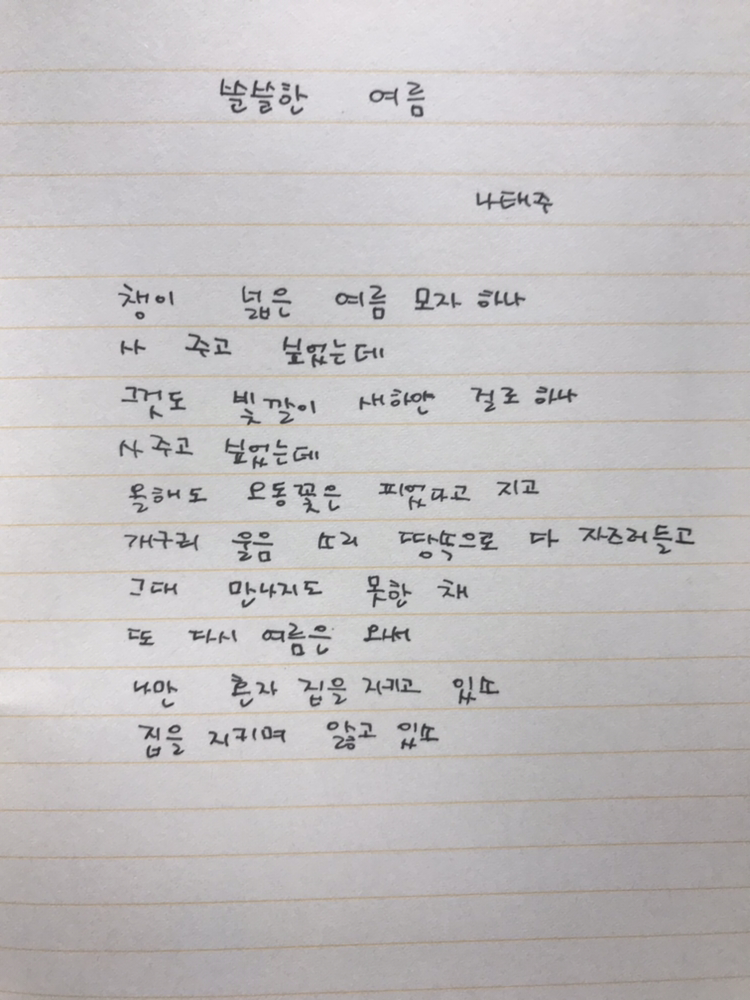 쓸쓸한 여름
나태주
챙이 넓은 여름 모자 하나
사 주고 싶었는데
그것도 빛깔이 새하얀 걸로 하나
사 주고 싶었는데
올해도 오동꽃은 피었다고 지고
개구리 울음 소리 땅속으로 다 자즈러들고
그대 만나지도 못한 채
또 다시 여름은 와서
나만 혼자 집을 지키고 있소
집을 지키며 앓고 있소